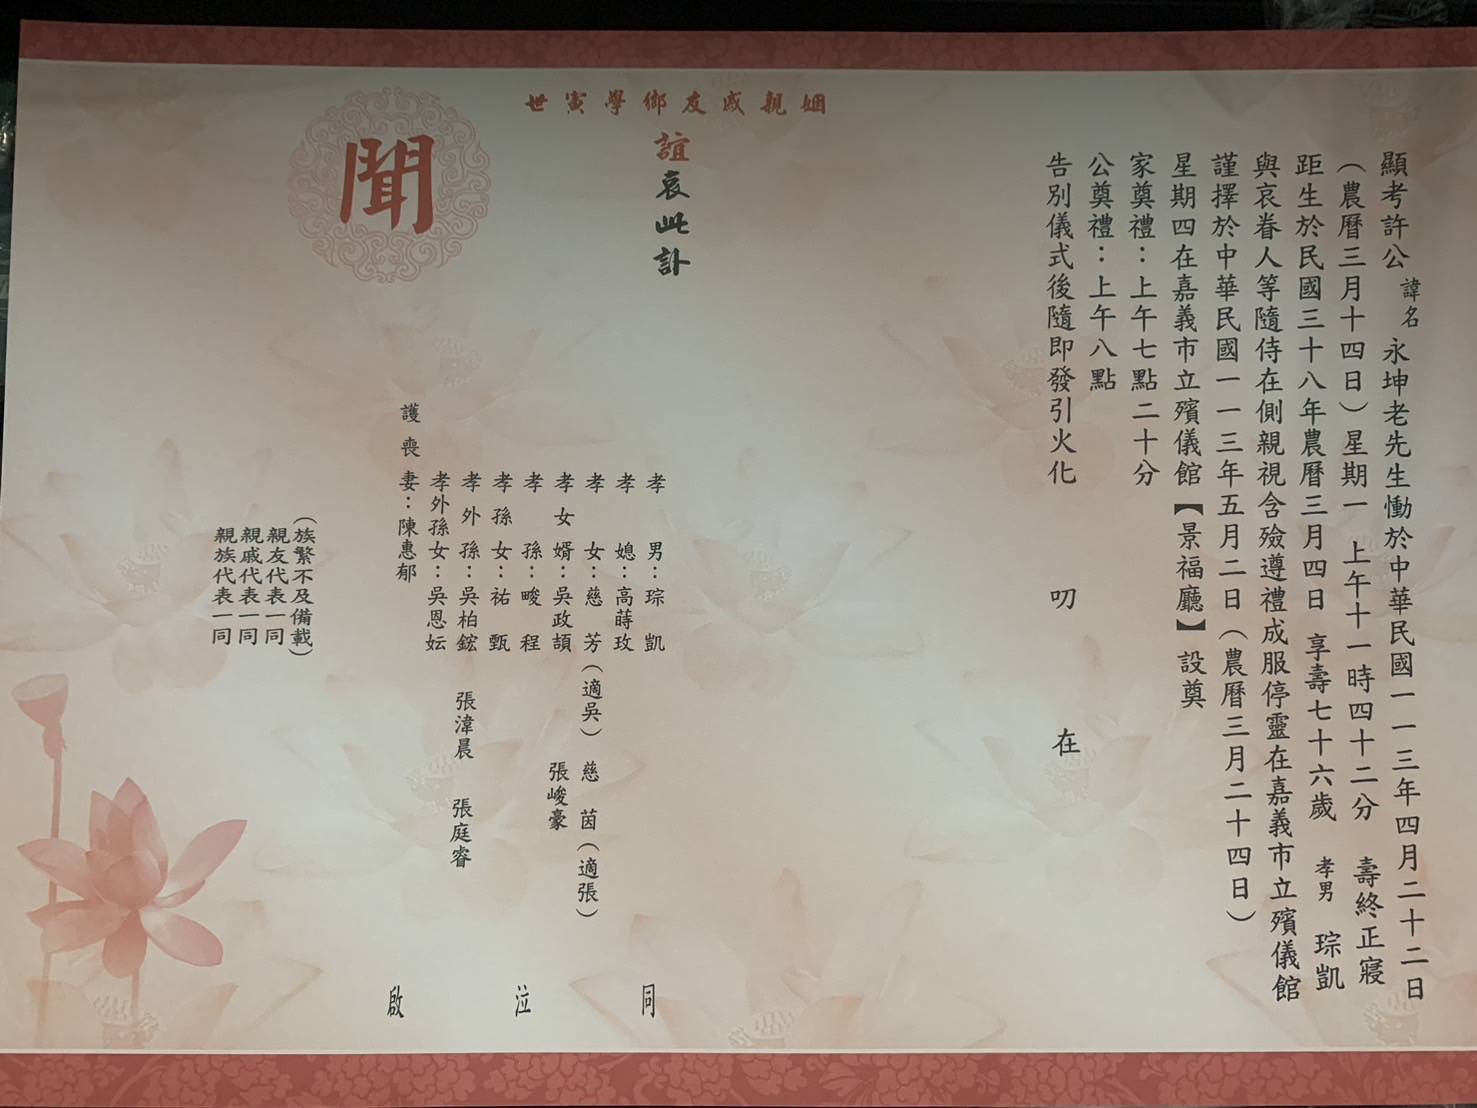 顯考許公諱名永坤老先生慟於中華民國一一三年四月二十二日
（農曆三月十四日）星期一 上午十一時四十二分 壽終正寢
距生於民國三十八年農曆三月四日 享壽七十六歲 孝男 琮凱
與哀眷人等隨侍在側親視含殮遵禮成服停靈在嘉義市立殯儀館
謹擇於中華民國一一三年五月二日（農曆三月二十四日）
星期四在嘉義市立殯儀館【景福廳】設奠
家奠禮：上午七點二十分
公奠禮：上午八點
告別儀式後隨即發引火化 叨 在
姻親戚友鄉學寅世
誼哀此訃
聞
孝 男：琮 凱
孝 媳：高蒔玫
孝 女：慈 芳（適吳） 慈 茵（適張）
孝女婿：吳政頡 張峻豪
孝 孫：畯 程
孝孫女：祐 甄
孝外孫：吳柏鋐 張湋晨 張庭睿
孝外孫女：吳恩妘
護喪妻：陳惠郁
（族繁不及備載）
親友代表一同
親戚代表一同
親族代表一同
同 泣 啟